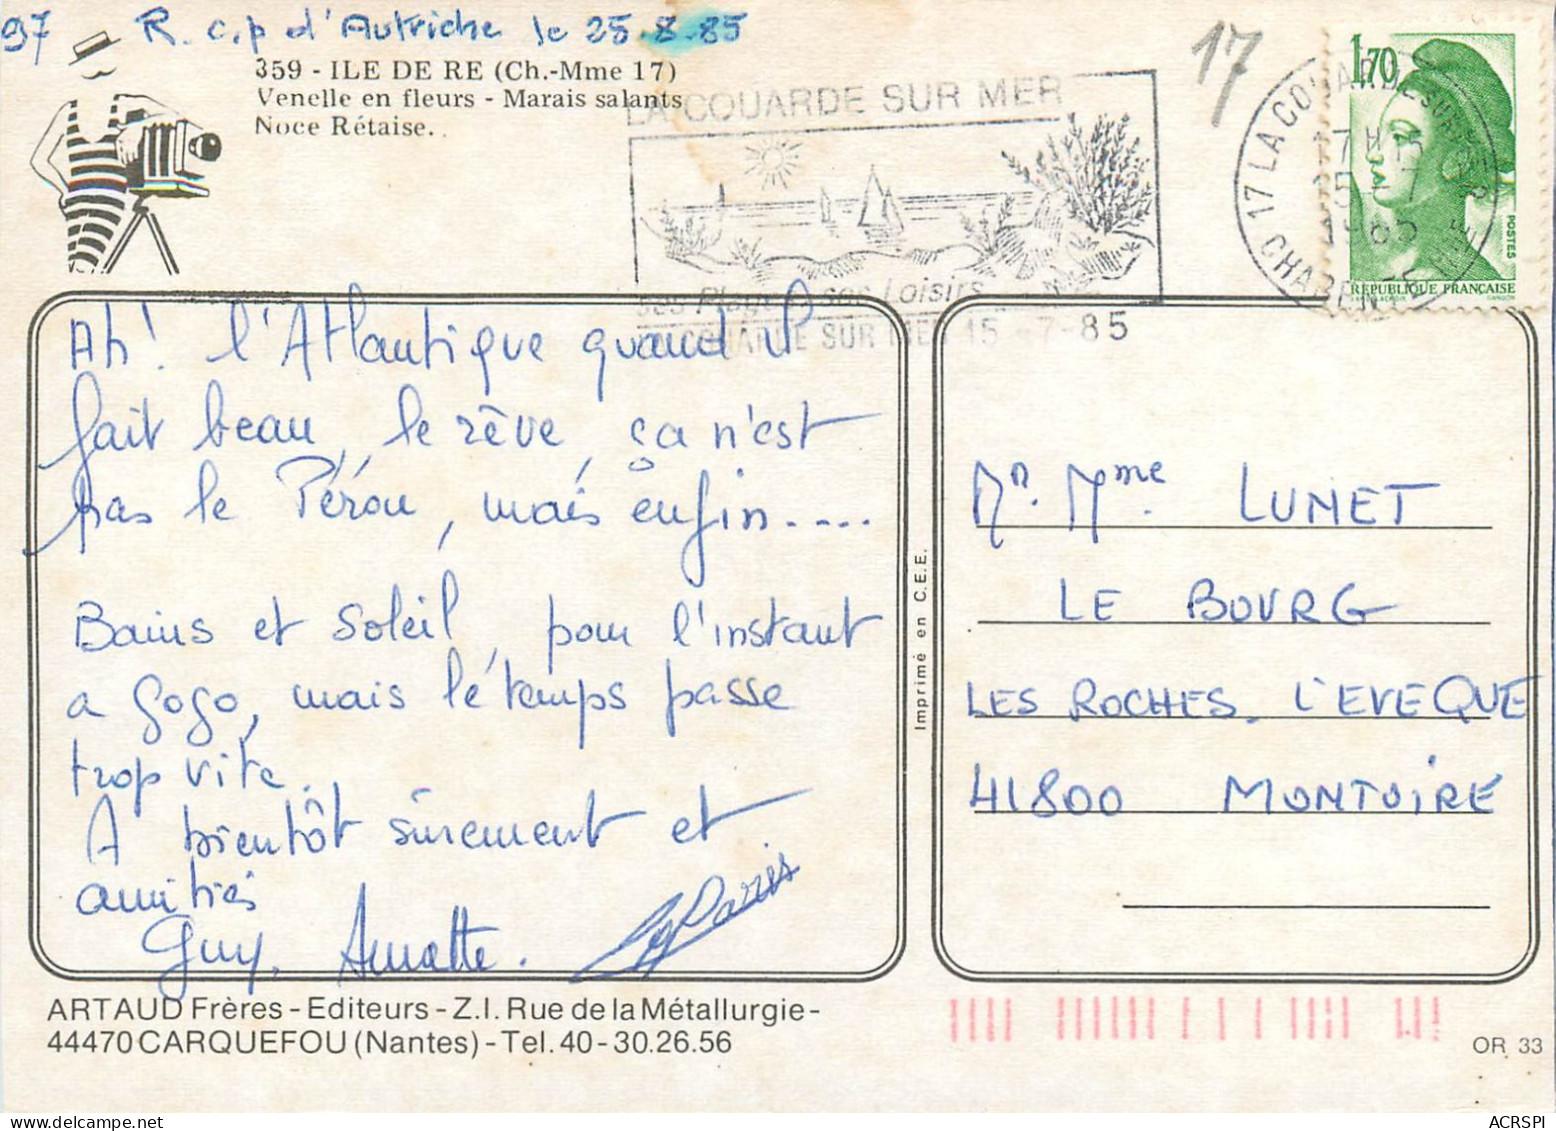 97 R. c.p d'Autriche le 25.8.85
359 - ILE DE RE (Ch.-Mme 17)
Venelle en fleurs - Marais salants
Noce Rétaise.
17
LA COUARDE SUR MER
ses Plages ses Loisirs
LA COUARDE SUR MER 15 -7-85
17 LA COUARDE SUR MER
17 H 15
15 -7
1985
CHARENTE MME
1,70
POSTES
REPUBLIQUE FRANÇAISE
Ah! l'Atlantique quand il
fait beau, le rêve, ça n'est
pas le Pérou, mais enfin.....
Bains et soleil, pour l'instant
a gogo, mais le temps passe
trop vite.
A bientôt sûrement et
amitiés
Guy, Annette.
Imprimé en C.E.E.
Mr. Mme LUMET
LE BOURG
LES ROCHES. L'EVEQUE
41800 MONTOIRE
ARTAUD Frères - Editeurs - Z.I. Rue de la Métallurgie -
44470 CARQUEFOU (Nantes) - Tel. 40-30.26.56
OR 33
ACRSPI